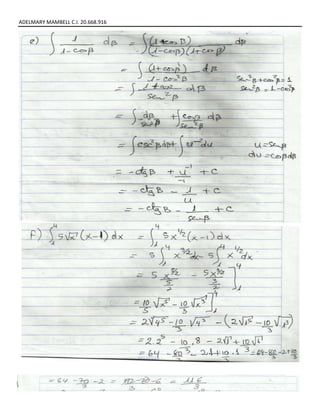 ADELMARY MAMBELL C.I. 20.668.916
e) ∫ 1/(1-cosβ) dβ = ∫ (1+cosβ)/((1-cosβ)(1+cosβ)) dβ
= ∫ (1+cosβ)/(1-cos²β) dβ sen²β+cos²β=1
= ∫ (1+cosβ)/sen²β dβ sen²β=1-cos²β
= ∫ dβ/sen²β + ∫ cosβ/sen²β dβ
= ∫csc²βdβ+∫u⁻²du u=senβ
= -ctgβ + u⁻¹/-1 + C du=cosβdβ
= -ctgβ - 1/u + C
= -ctgβ - 1/senβ + C
F) ∫₁⁴ 5√x (x-1)dx = ∫₁⁴ 5x^1/2 (x-1)dx
= 5 ∫₁⁴ x^3/2 dx - 5 ∫₁⁴ x^1/2 dx
= 5 x^5/2 / 5/2 - 5x^3/2 / 3/2 ]₁⁴
= 10/5 √x⁵ - 10/3 √x³ ]₁⁴
= 2√4⁵ - 10/3 √4³ - (2√1⁵ - 10/3 √1³)
= 2.2⁵ - 10/3 . 8 - 2√1 + 10/3 √1
= 64 - 80/3 - 2.1 + 10/3 . 1 = 64-80/3-2+10/3
= 64 - 70/3 - 2 = (192-70-6)/3 = 116/3